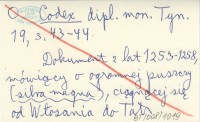 Codex dipl. mon. Tyn.
19, s. 43-44.
Dokument z lat 1253-1258,
mówiący o ogromnej puszczy
(silva magna), ciągnącej się
od Włosania do Tatr